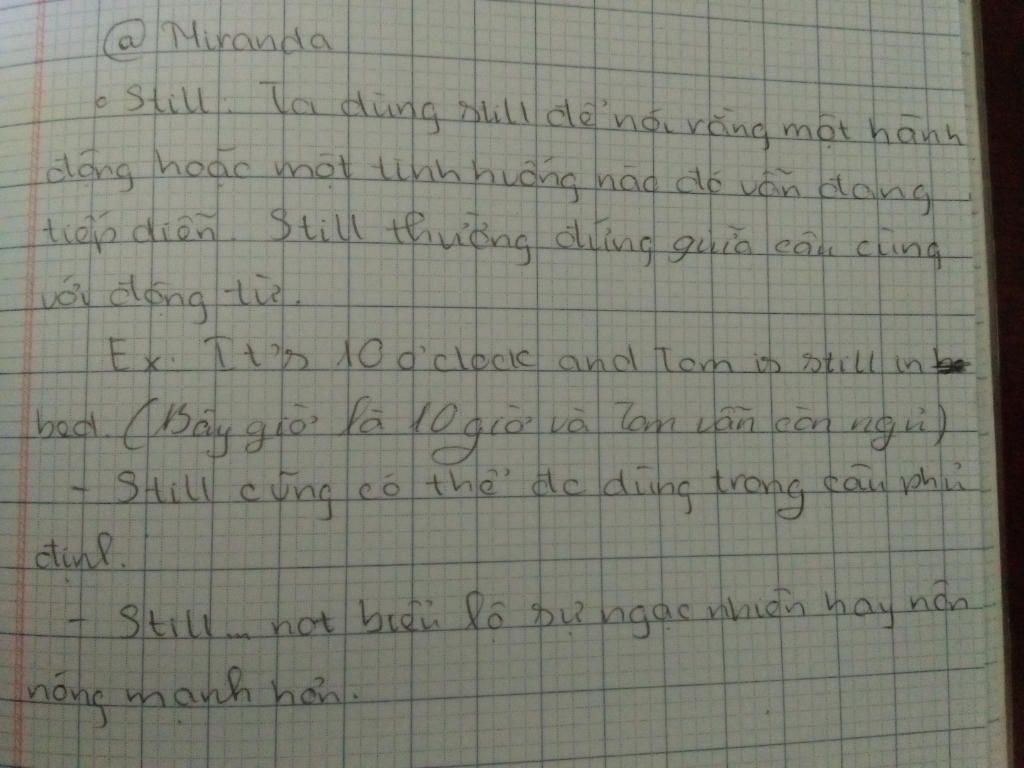 @ Miranda
• Still. Ta dùng still để nói rằng một hành
động hoặc một tình huống nào đó vẫn đang
tiếp diễn. Still thường đứng giữa câu cùng
với động từ.
Ex. It's 10 o'clock and Tom is still in
bed. (Bây giờ là 10 giờ và Tom vẫn còn ngủ)
- Still cũng có thể đc dùng trong câu phủ
định.
- Still... not biểu lộ sự ngạc nhiên hay nôn
nóng mạnh hơn.